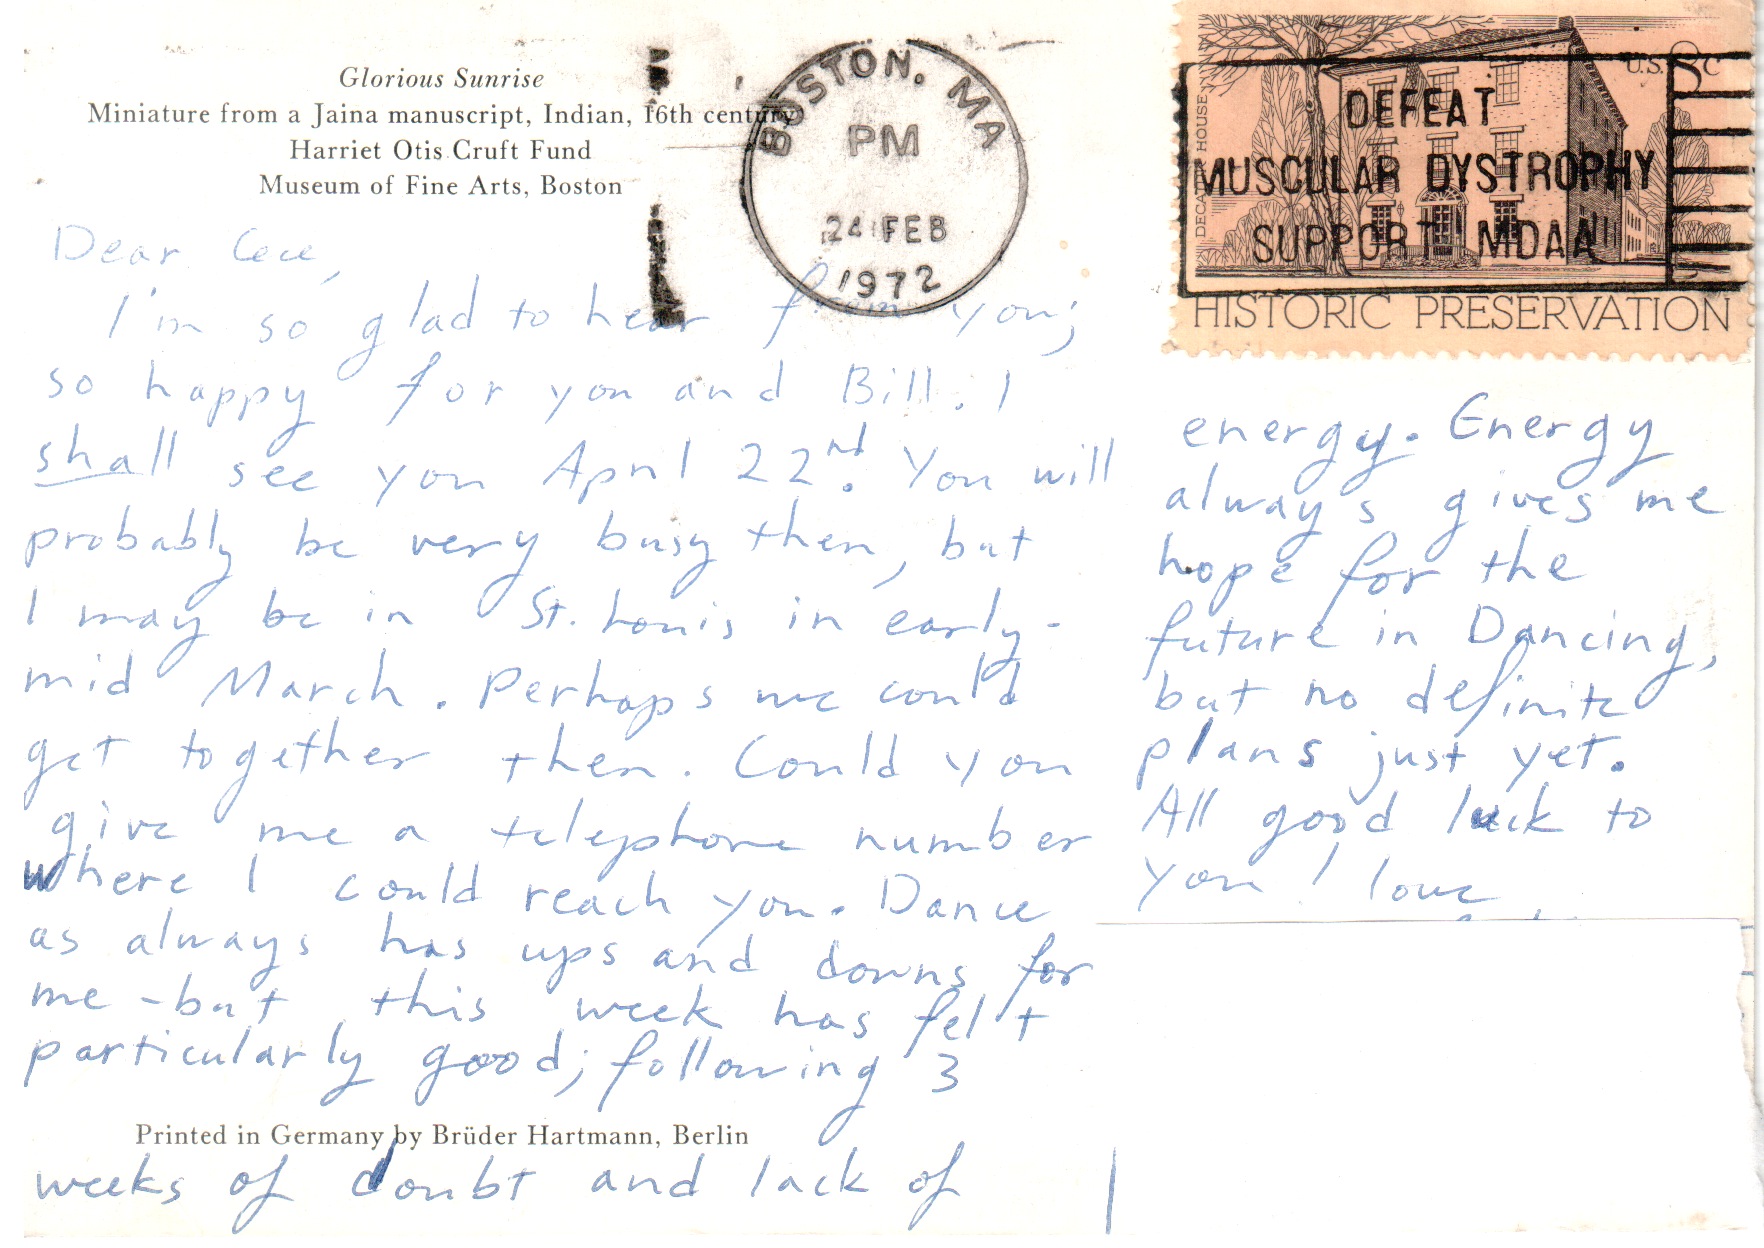 Glorious Sunrise
Miniature from a Jaina manuscript, Indian, 16th century
Harriet Otis Cruft Fund
Museum of Fine Arts, Boston
BOSTON. MA
PM
24 FEB
1972
U.S. 8c
DECATUR HOUSE
DEFEAT
MUSCULAR DYSTROPHY
SUPPORT MDAA
HISTORIC PRESERVATION
Dear Cece,
I'm so glad to hear from you;
so happy for you and Bill. I
shall see you April 22nd. You will
probably be very busy then, but
I may be in St. Louis in early-
mid March. Perhaps we could
get together then. Could you
give me a telephone number
where I could reach you. Dance
as always has ups and downs for
me - but this week has felt
particularly good; following 3
Printed in Germany by Brüder Hartmann, Berlin
weeks of doubt and lack of
energy. Energy
always gives me
hope for the
future in Dancing,
but no definite
plans just yet.
All good luck to
you! love